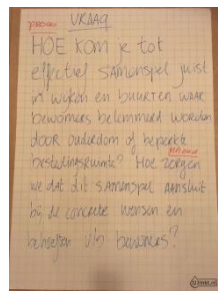 proces VRAAG
HOE kom je tot
effectief samenspel juist
in wijken en buurten waar
bewoners belemmerd worden
door ouderdom of beperkte
bestedingsruimte? Hoe zorgen
we dat dit samenspel aansluit
bij de concrete wensen en
behoeften v/d bewoners?